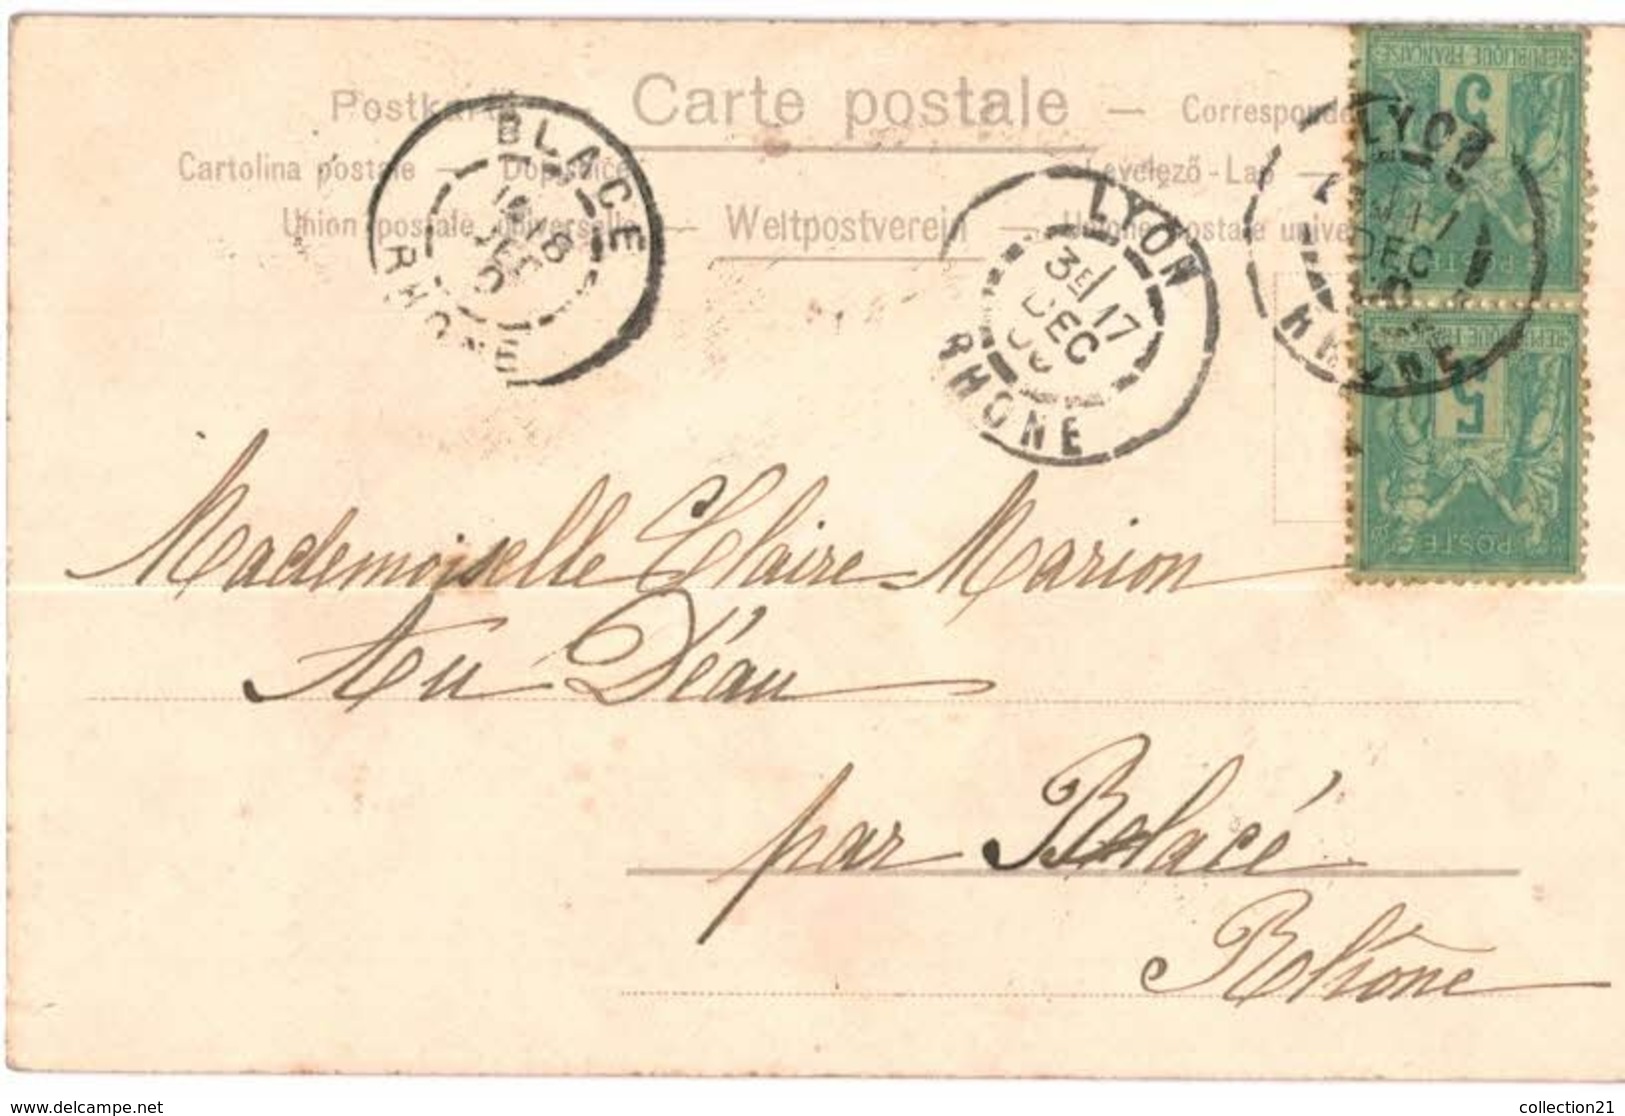 Postkarte — Carte postale — Corresponde
Cartolina postale — Dopisnice — Levelező-Lap —
Union postale universelle — Weltpostverein — Unione postale unive
BLACE
18
DEC
RHONE
LYON
3E/17
DEC
RHONE
LYON
17
DEC
RHONE
RÉPUBLIQUE FRANÇAISE
5
POSTE
5
POSTE
Mademoiselle Claire Marion
Au Déau
par Blacé
Rhône
www.delcampe.net
collection21